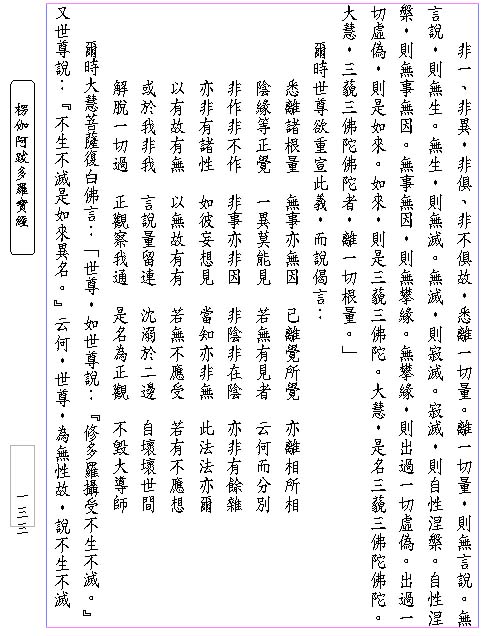 非一、非異，非俱、非不俱故，悉離一切量。離一切量，則無言說。無
言說，則無生。無生，則無滅。無滅，則寂滅。寂滅，則自性涅槃。自性涅
槃，則無事無因。無事無因，則無攀緣。無攀緣，則出過一切虛偽。出過一
切虛偽，則是如來。如來，則是三藐三佛陀。大慧，是名三藐三佛陀佛陀。
大慧，三藐三佛陀佛陀者，離一切根量。」
爾時世尊欲重宣此義，而說偈言：
悉離諸根量　無事亦無因　已離覺所覺　亦離相所相
陰緣等正覺　一異莫能見　若無有見者　云何而分別
非作非不作　非事亦非因　非陰非在陰　亦非有餘雜
亦非有諸性　如彼妄想見　當知亦非無　此法法亦爾
以有故有無　以無故有有　若無不應受　若有不應想
或於我非我　言說量留連　沈溺於二邊　自壞壞世間
解脫一切過　正觀察我通　是名為正觀　不毀大導師
爾時大慧菩薩復白佛言：「世尊，如世尊說：『修多羅攝受不生不滅。』
又世尊說：『不生不滅是如來異名。』云何，世尊，為無性故，說不生不滅
楞伽阿跋多羅寶經
一三三